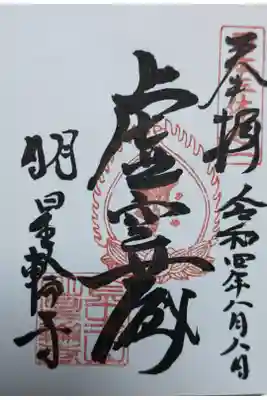 奉拝 令和四年八月八日
虚空蔵
明星輪寺